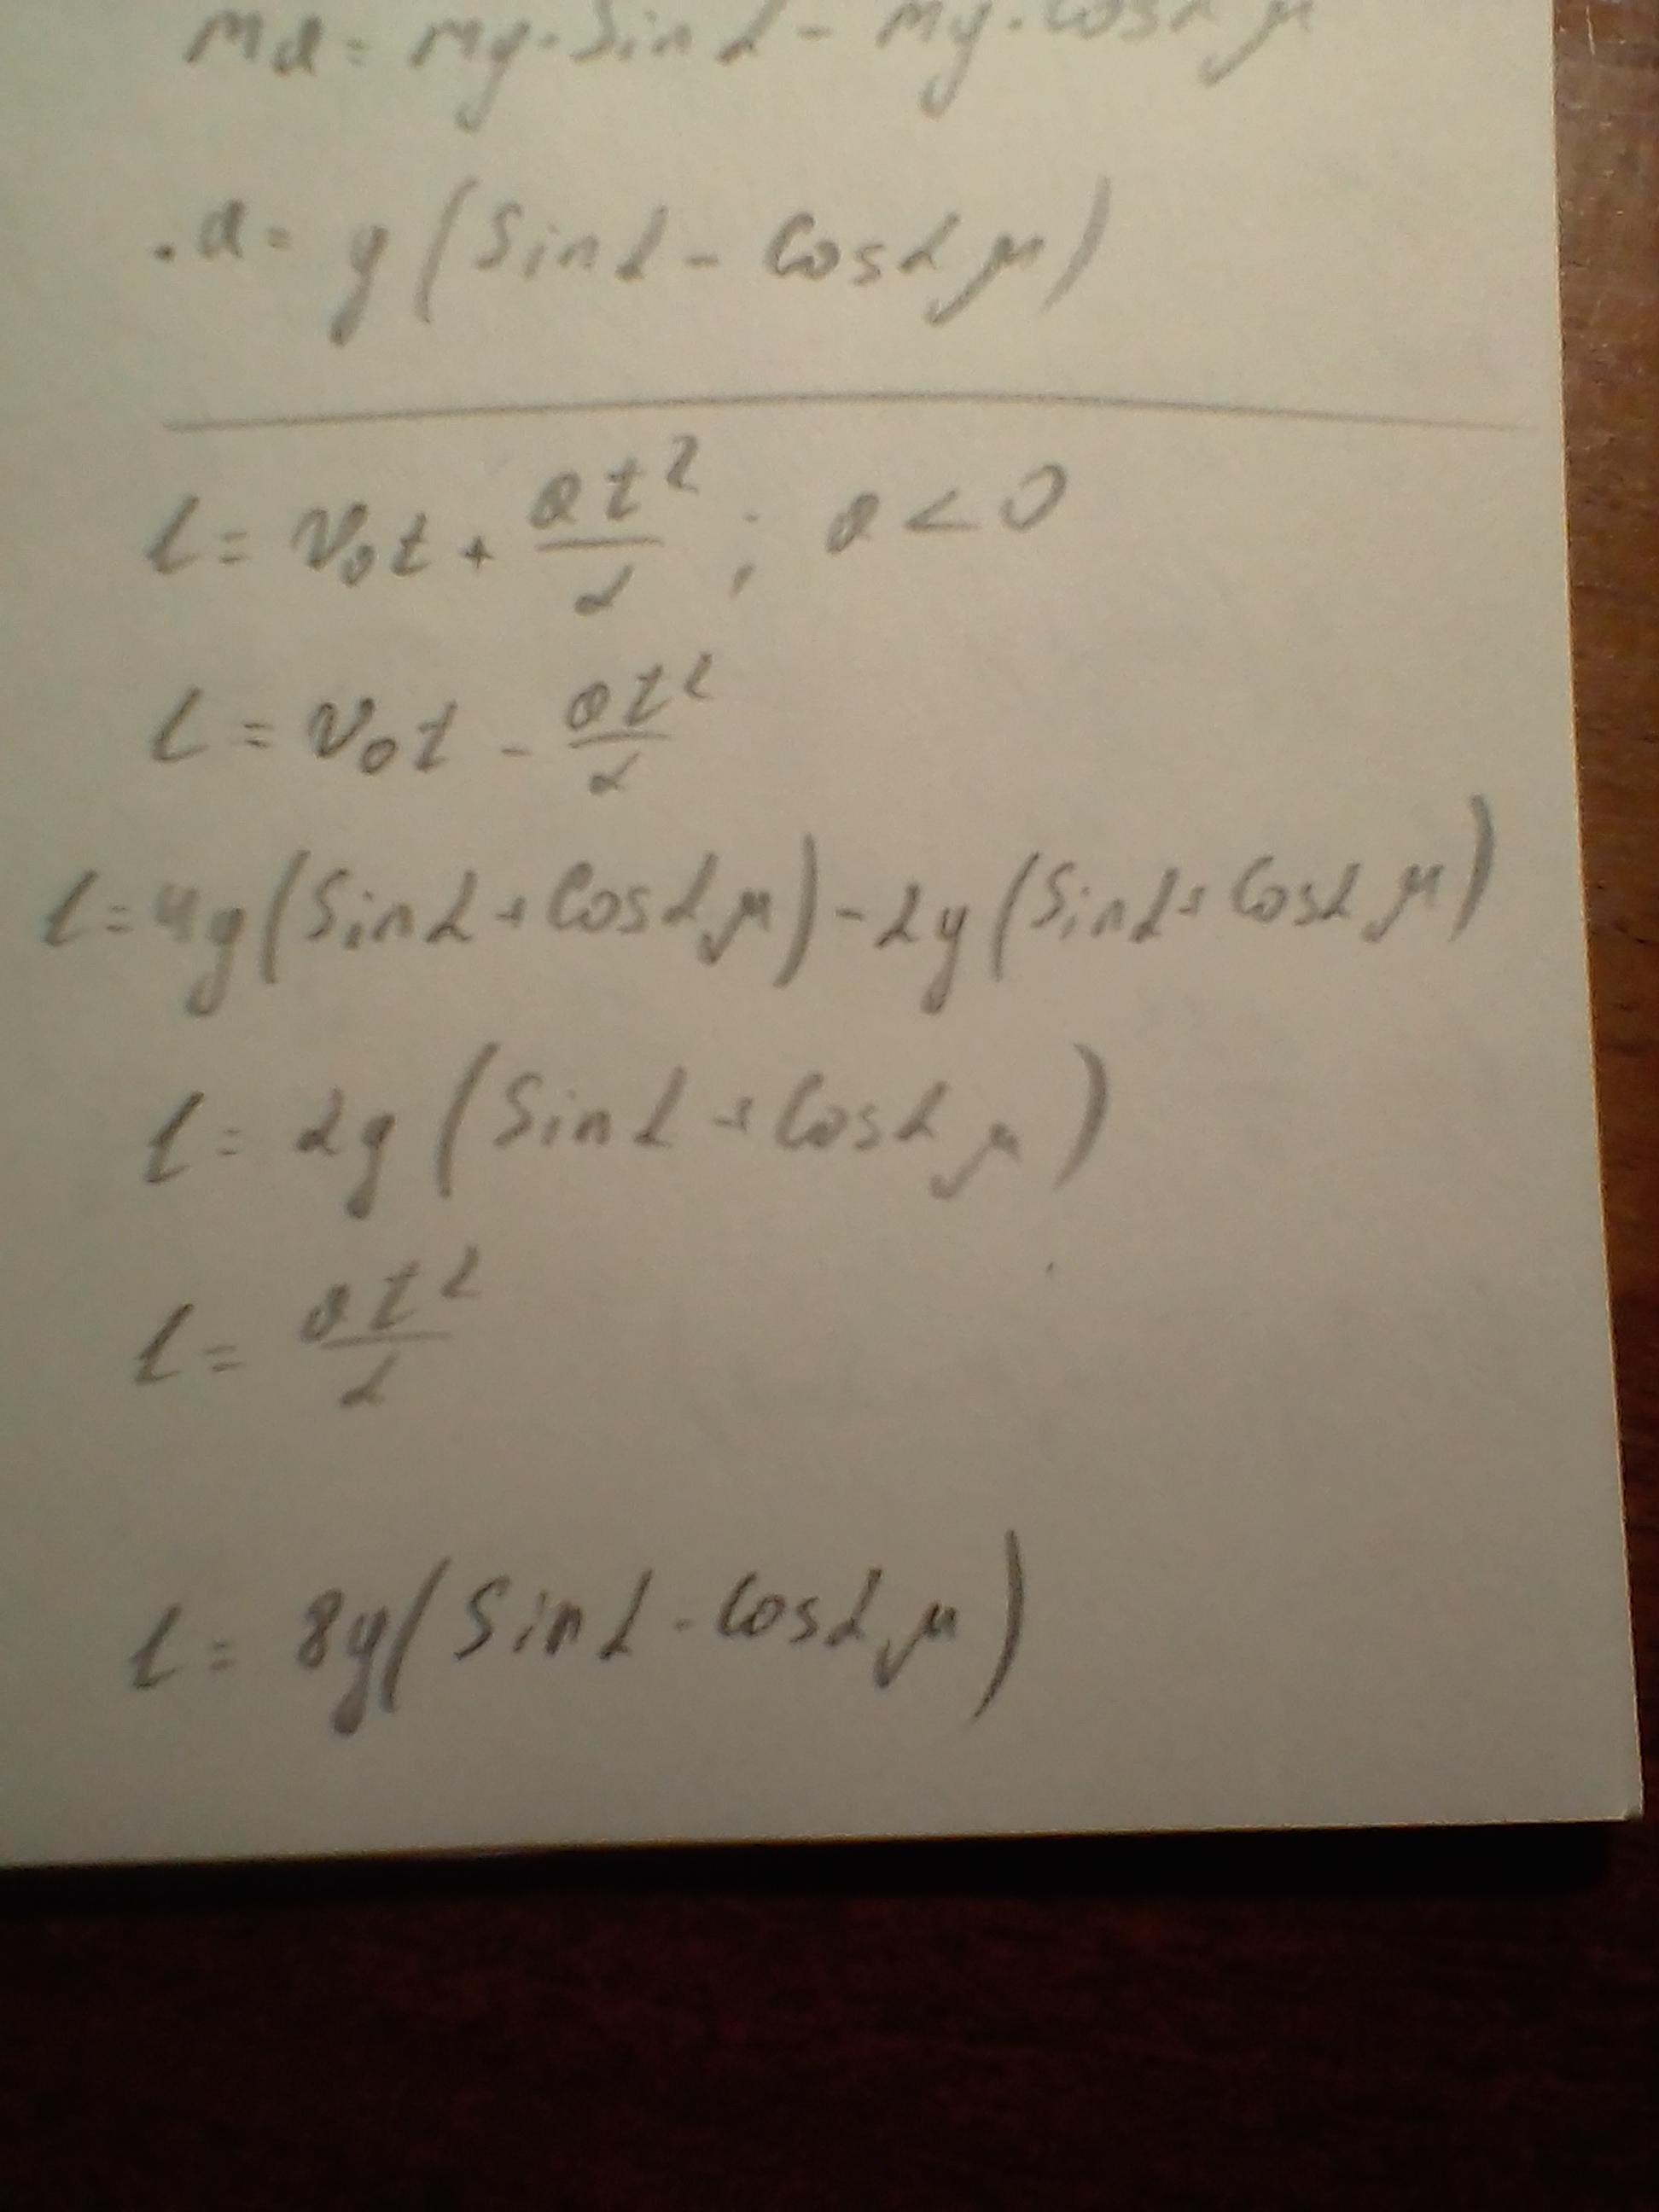 ma = mg·Sinα - mg·Cosα μ
.a = g(Sinα - Cosα μ)
l = v₀t + at²/2 ; a < 0
l = v₀t - at²/2
l = 4g(Sinα + Cosα μ) - 2g(Sinα + Cosα μ)
l = 2g(Sinα + Cosα μ)
l = at²/2
l = 8g(Sinα - Cosα μ)